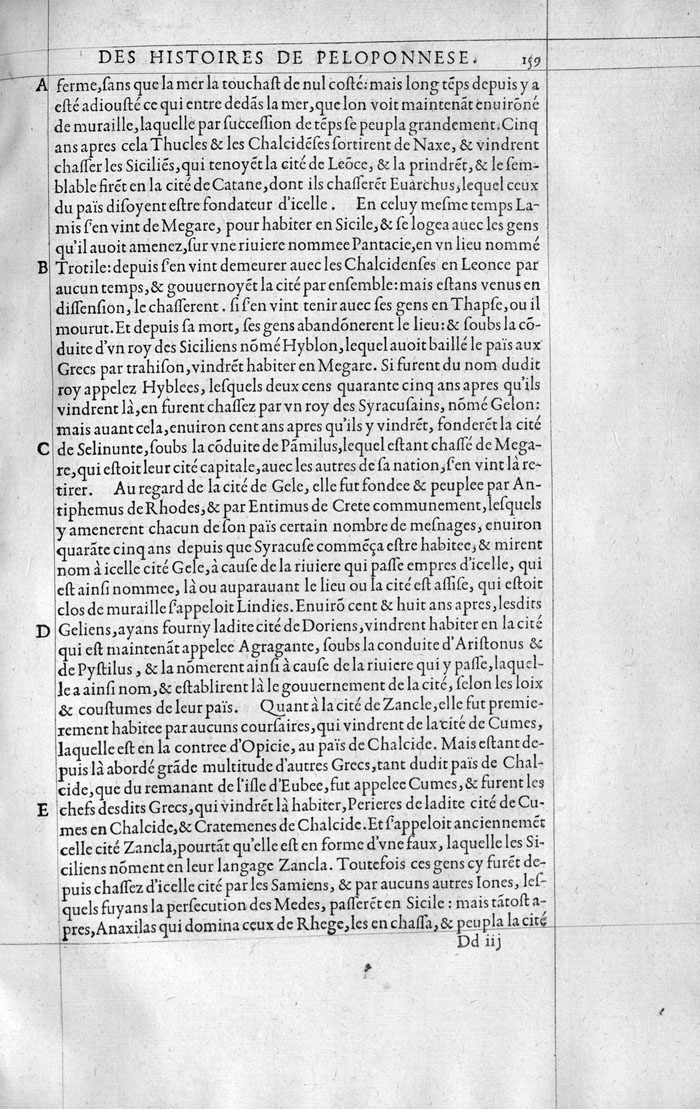 DES HISTOIRES DE PELOPONNESE. 159
A ferme,ſans que la mer la touchaſt de nul coſté:mais long tẽps depuis y a
eſté adiouſté ce qui entre dedãs la mer,que lon voit maintenãt enuirõné
de muraille,laquelle par ſucceſſion de tẽps ſe peupla grandement.Cinq
ans apres cela Thucles & les Chalcidẽſes ſortirent de Naxe, & vindrent
chaſſer les Siciliẽs,qui tenoyẽt la cité de Leõce, & la prindrẽt, & le ſem-
blable firẽt en la cité de Catane,dont ils chaſſerẽt Euarchus,lequel ceux
du païs diſoyent eſtre fondateur d'icelle. En celuy meſme temps La-
mis ſ'en vint de Megare, pour habiter en Sicile,& ſe logea auec les gens
qu'il auoit amenez,ſur vne riuiere nommee Pantacie,en vn lieu nommé
B Trotile:depuis ſ'en vint demeurer auec les Chalcidenſes en Leonce par
aucun temps,& gouuernoyẽt la cité par enſemble:mais eſtans venus en
diſſenſion, le chaſſerent. ſi ſ'en vint tenir auec ſes gens en Thapſe,ou il
mourut.Et depuis ſa mort, ſes gens abandõnerent le lieu:& ſoubs la cõ-
duite d'vn roy des Siciliens nõmé Hyblon,lequel auoit baillé le païs aux
Grecs par trahiſon,vindrẽt habiter en Megare. Si furent du nom dudit
roy appelez Hyblees, leſquels deux cens quarante cinq ans apres qu'ils
vindrent là,en furent chaſſez par vn roy des Syracuſains, nõmé Gelon:
mais auant cela,enuiron cent ans apres qu'ils y vindrẽt, fonderẽt la cité
C de Selinunte,ſoubs la cõduite de Pãmilus,lequel eſtant chaſſé de Mega-
re,qui eſtoit leur cité capitale,auec les autres de ſa nation,ſ'en vint là re-
tirer. Au regard de la cité de Gele, elle fut fondee & peuplee par An-
tiphemus de Rhodes,& par Entimus de Crete communement,leſquels
y amenerent chacun de ſon païs certain nombre de meſnages, enuiron
quarãte cinq ans depuis que Syracuſe commẽça eſtre habitee,& mirent
nom à icelle cité Gele,à cauſe de la riuiere qui paſſe empres d'icelle, qui
eſt ainſi nommee, là ou auparauant le lieu ou la cité eſt aſſiſe, qui eſtoit
clos de muraille ſ'appeloit Lindies.Enuirõ cent & huit ans apres,leſdits
D Geliens,ayans fourny ladite cité de Doriens,vindrent habiter en la cité
qui eſt maintenãt appelee Agragante, ſoubs la conduite d'Ariſtonus &
de Pyſtilus, & la nõmerent ainſi à cauſe de la riuiere qui y paſſe,laquel-
le a ainſi nom,& eſtablirent là le gouuernement de la cité, ſelon les loix
& couſtumes de leur païs. Quant à la cité de Zancle,elle fut premie-
rement habitee par aucuns courſaires,qui vindrent de la cité de Cumes,
laquelle eſt en la contree d'Opicie, au païs de Chalcide. Mais eſtant de-
puis là abordé grãde multitude d'autres Grecs,tant dudit païs de Chal-
cide,que du remanant de l'iſle d'Eubee,fut appelee Cumes,& furent les
E chefs deſdits Grecs,qui vindrẽt là habiter,Perieres de ladite cité de Cu-
mes en Chalcide,& Cratemenes de Chalcide.Et ſ'appeloit anciennemẽt
celle cité Zancla,pourtãt qu'elle eſt en forme d'vne faux, laquelle les Si-
ciliens nõment en leur langage Zancla. Toutefois ces gens cy furẽt de-
puis chaſſez d'icelle cité par les Samiens, & par aucuns autres Iones, leſ-
quels fuyans la perſecution des Medes, paſſerẽt en Sicile : mais tãtoſt a-
pres,Anaxilas qui domina ceux de Rhege,les en chaſſa,& peupla la cité
Dd iij